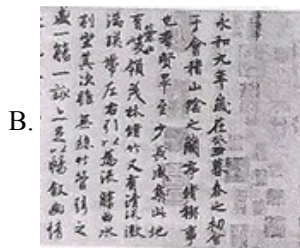 B.
永和九年歲在癸丑暮春之初會
于會稽山陰之蘭亭脩禊事
也羣賢畢至少長咸集此地
有崇山峻領茂林脩竹又有清流激
湍暎帶左右引以為流觴曲水
列坐其次雖無絲竹管弦之
盛一觴一詠亦足以暢敘幽情